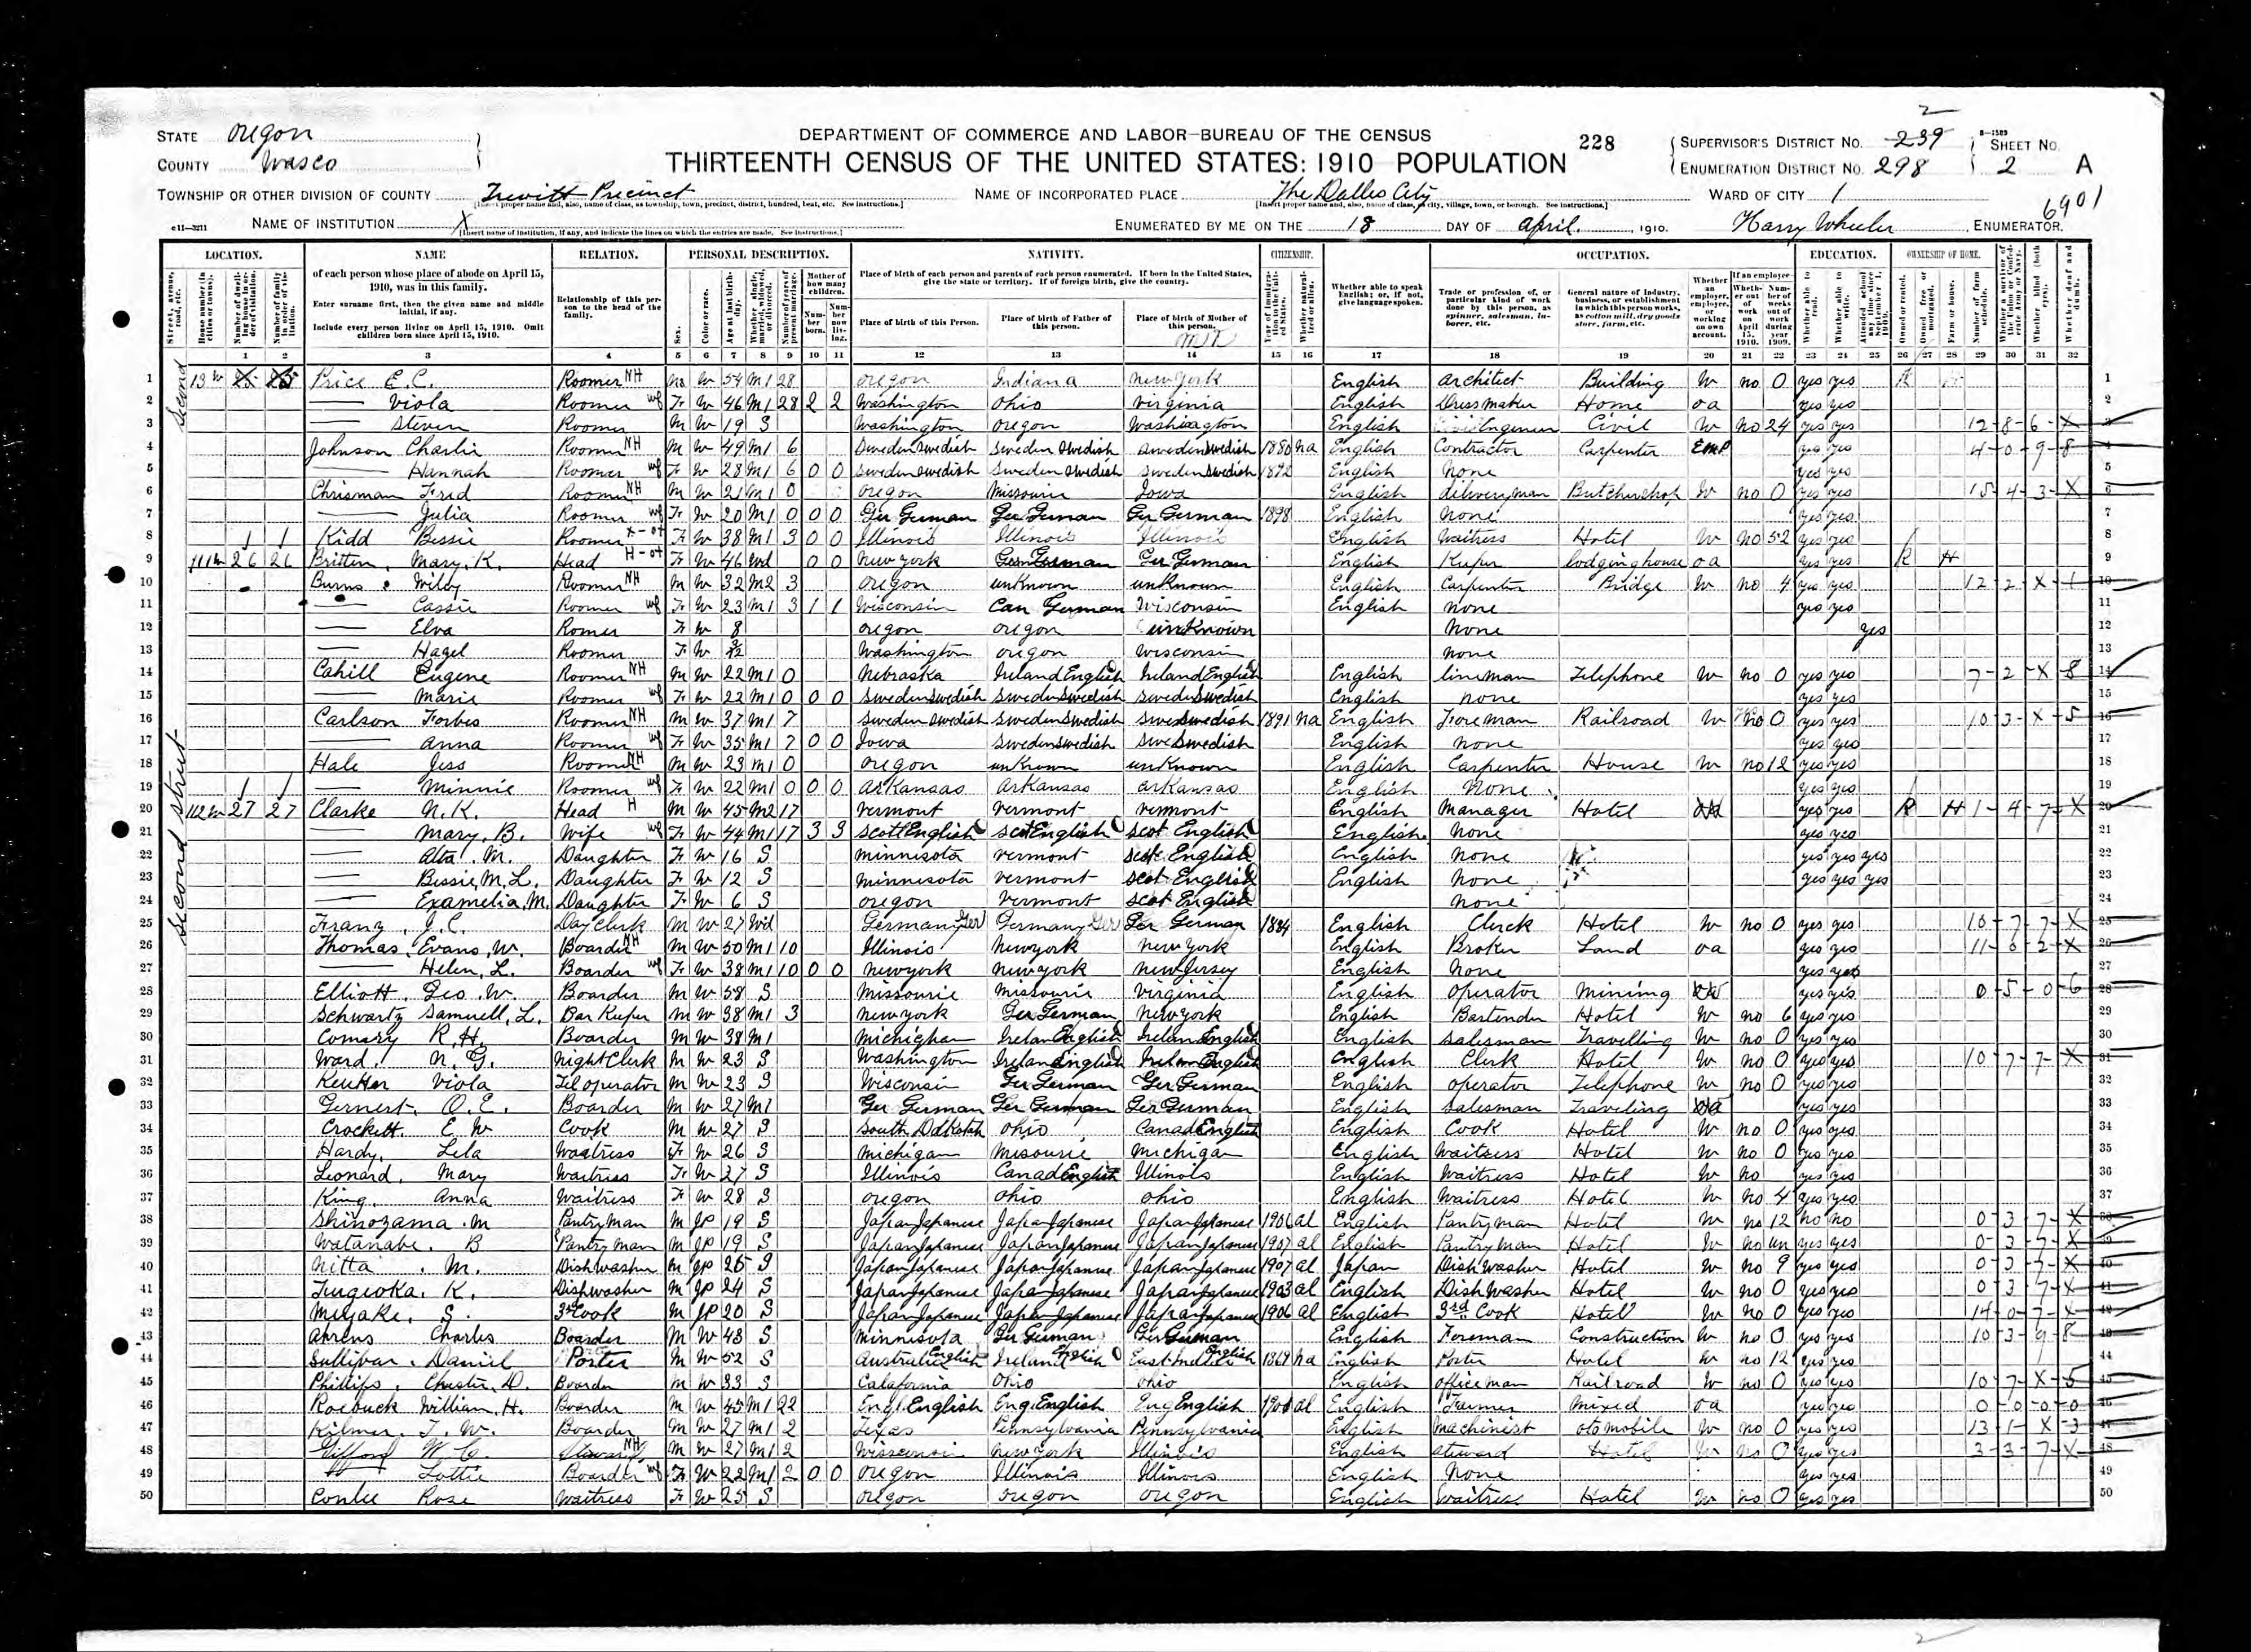 2
STATE Oregon
DEPARTMENT OF COMMERCE AND LABOR-BUREAU OF THE CENSUS
228
SUPERVISOR'S DISTRICT No. 239
8-1589
SHEET No.
COUNTY Wasco
THIRTEENTH CENSUS OF THE UNITED STATES: 1910 POPULATION
ENUMERATION DISTRICT No. 298
2 A
TOWNSHIP OR OTHER DIVISION OF COUNTY Trevitt Precinct
NAME OF INCORPORATED PLACE The Dalles City
WARD OF CITY 1
6901
NAME OF INSTITUTION X
ENUMERATED BY ME ON THE 18 DAY OF April, 1910. Harry Wheeler, ENUMERATOR.
LOCATION. NAME RELATION. PERSONAL DESCRIPTION. NATIVITY. CITIZENSHIP. OCCUPATION. EDUCATION. OWNERSHIP OF HOME.
of each person whose place of abode on April 15, 1910, was in this family.
Enter surname first, then the given name and middle initial, if any.
Include every person living on April 15, 1910. Omit children born since April 15, 1910.
Relationship of this person to the head of the family.
Place of birth of each person and parents of each person enumerated. If born in the United States, give the state or territory. If of foreign birth, give the country.
Place of birth of this Person. Place of birth of Father of this person. Place of birth of Mother of this person.
Whether able to speak English; or, if not, give language spoken.
Trade or profession of, or particular kind of work done by this person, as spinner, salesman, laborer, etc.
General nature of industry, business, or establishment in which this person works, as cotton mill, dry goods store, farm, etc.
1 2 3 4 5 6 7 8 9 10 11 12 13 14 15 16 17 18 19 20 21 22 23 24 25 26 27 28 29 30 31 32
1 Price E. C. Roomer NH W 54 M1 28 Oregon Indiana New York English Architect Building W no 0 yes yes 1
2 — Viola Roomer wf F W 46 M1 28 2 2 Washington Ohio Virginia English Dressmaker Home oa yes yes 2
3 — Steven Roomer M W 19 S Washington Oregon Washington English Civil W no 24 yes yes 12-8-6-X 3
4 Johnson Charlie Roomer NH M W 49 M1 6 Sweden Swedish Sweden Swedish Sweden Swedish 1880 na English Contractor Carpenter Emp yes yes 4-0-9-8 4
5 — Hannah Roomer wf F W 28 M1 6 0 0 Sweden Swedish Sweden Swedish Sweden Swedish 1892 English None yes yes 5
6 Chrisman Fred Roomer NH M W 21 M1 0 Oregon Missourie Iowa English deliveryman Butchershop W no 0 yes yes 15-4-3-X 6
7 — Julia Roomer wf F W 20 M1 0 0 0 Ger German Ger German Ger German 1898 English None yes yes 7
8 Kidd Bessie Roomer F W 38 M1 3 0 0 Illinois Illinois Illinois English Waitress Hotel W no 52 yes yes 8
9 26 26 Britten, Mary, K. Head F W 46 Wd 0 0 New York Ger German Ger German English Keeper lodging house oa yes yes R H 9
10 Burns Wilby Roomer NH M W 32 M2 3 Oregon unKnown unKnown English Carpenter Bridge W no 4 yes yes 12-2-X-1 10
11 — Cassie Roomer wf F W 23 M1 3 1 1 Wisconsin Can German Wisconsin English None yes yes 11
12 — Elva Romer F W 8 Oregon Oregon unKnown None yes 12
13 — Hazel Roomer F W Washington Oregon Wisconsin None 13
14 Cahill Eugene Roomer NH M W 22 M1 0 Nebraska Ireland English Ireland English English lineman Telephone W no 0 yes yes 7-2-X-8 14
15 — Marie Roomer wf F W 22 M1 0 0 0 Sweden Swedish Sweden Swedish Sweden Swedish English None yes yes 15
16 Carlson Forbes Roomer NH M W 37 M1 7 Sweden Swedish Sweden Swedish Swe Swedish 1891 na English Foreman Railroad W no 0 yes yes 10-3-X-5 16
17 — Anna Roomer wf F W 35 M1 7 0 0 Iowa Sweden Swedish Swe Swedish English None yes yes 17
18 Hale Jess Roomer NH M W 23 M1 0 Oregon unKnown unKnown English Carpenter House W no 12 yes yes 18
19 — Minnie Roomer wf F W 22 M1 0 0 0 Arkansas Arkansas Arkansas English None yes yes 19
20 27 27 Clarke N. K. Head H M W 45 M2 17 Vermont Vermont Vermont English Manager Hotel yes yes R H 1-4-7-X 20
21 — Mary, B. Wife wf F W 44 M1 17 3 3 Scott English Scot English Scot English English None yes yes 21
22 — Alta. M. Daughter F W 16 S Minnesota Vermont Scot English English None yes yes yes 22
23 — Bessie, M. L. Daughter F W 12 S Minnesota Vermont Scot English English None yes yes yes 23
24 — Examelia, M. Daughter F W 6 S Oregon Vermont Scot English None 24
25 Franz, J. C. Day Clerk M W 27 Wd Germany Ger Germany Ger Ger German 1884 English Clerk Hotel W no 0 yes yes 10-7-7-X 25
26 Thomas, Evans, W. Boarder NH M W 50 M1 10 Illinois New York New York English Broker Land oa yes yes 11-6-2-X 26
27 — Helen, L. Boarder wf F W 38 M1 10 0 0 New York New York New Jersey English None yes yes 27
28 Elliott, Geo. W. Boarder M W 58 S Missourie Missourie Virginia English Operator Mining yes yes 0-5-0-6 28
29 Schwartz Samuell, L. Bar Keeper M W 38 M1 3 New York Ger German New York English Bartender Hotel W no 6 yes yes 29
30 R. H. Boarder M W 38 M1 Michighan Irelan English Irelan English English Salesman Travelling W no 0 yes yes 30
31 Ward, N. G. Night Clerk M W 23 S Washington Irelan English Irelan English English Clerk Hotel W no 0 yes yes 10-7-7-X 31
32 Viola Tel operator M W 23 S Wisconsin Ger German Ger German English Operator Telephone W no 0 yes yes 32
33 Gernert, O. E. Boarder M W 27 M1 Ger German Ger German Ger German English Salesman Traveling yes yes 33
34 Crockett, E W Cook M W 27 S South Ddkotah Ohio Canad English English Cook Hotel W no 0 yes yes 34
35 Hardy, Lela Waatress F W 26 S Michigan Missourie Michigan English Waitress Hotel W no 0 yes yes 35
36 Leonard, Mary Waitress F W 37 S Illinois Canad English Illinois English Waitress Hotel W no yes yes 36
37 King, Anna Waitress F W 28 S Oregon Ohio Ohio English Waitress Hotel W no 4 yes yes 37
38 Shinozama. M Pantry Man M JP 19 S Japan Japanese Japan Japanese Japan Japanese 1906 al English Pantryman Hotel W no 12 no no 0-3-7-X 38
39 Watanabe. B Pantry Man M JP 19 S Japan Japanese Japan Japanese Japan Japanese 1907 al English Pantry Man Hotel W no un yes yes 0-3-7-X 39
40 Nitta. M. Dishwasher M JP 25 S Japan Japanese Japan Japanese Japan Japanese 1907 al Japan Dish Washer Hotel W no 9 yes yes 0-3-7-X 40
41 K. Dishwasher M JP 24 S Japan Japanese Japan Japanese Japan Japanese 1903 al English Dish Washer Hotel W no 0 yes yes 0-3-7-X 41
42 Miyake, S. 3rd Cook M JP 20 S Japan Japanese Japan Japanese Japan Japanese 1906 al English 3rd Cook Hotel W no 0 yes yes 14-0-7-X 42
43 Ahrens Charles Boarder M W 48 S Minnisota Ger German Ger German English Foreman Construction W no 0 yes yes 10-3-9-8 43
44 Sullivan. Daniel Porter M W 52 S Australia English Ireland English East Indies English 1869 na English Porter Hotel W no 12 yes yes 44
45 Phillips, Chester, D. Boarder M W 33 S Calafornia Ohio Ohio English Office man Railroad W no 0 yes yes 10-7-X-5 45
46 Roebuck William, H. Boarder M W 45 M1 22 Engl. English Eng English Eng English al English Farmer Mixed oa yes yes 0-0-0-0 46
47 Kilmer, F. W. Boarder M W 27 M1 2 Texas Pennsylvania Pennsylvania English Machinist otomobile W no 0 yes yes 13-1-X-3 47
48 Gifford W. C. Steward NH M W 27 M1 2 Wisconsin New York Illinois English Steward Hotel W no 0 yes yes 3-3-7-X 48
49 Lottie Boarder wf F W 22 M1 2 0 0 Oregon Illinois Illinois English None yes yes 49
50 Conlee Rose Waitress F W 25 S Oregon Oregon Oregon English Waitress Hotel W no 0 yes yes 50
Second street